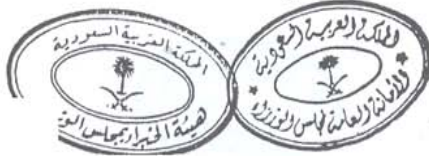 المملكة العربية السعودية
هيئة الخبراء بمجلس الوز
المملكة العربية السعودية
الأمانة العامة لمجلس الوزراء